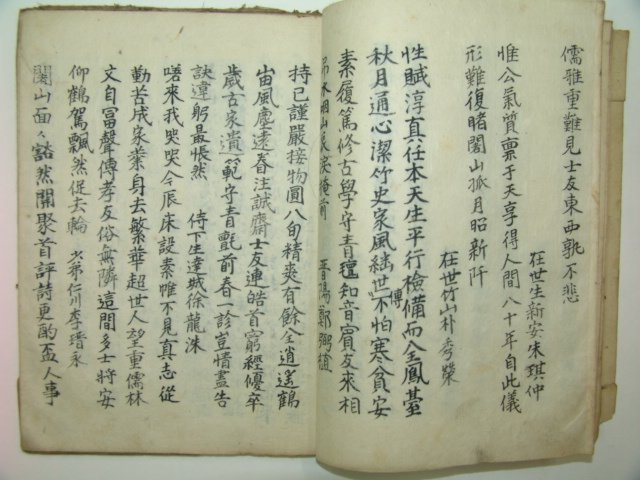 儒雅重難見士友東西孰不悲
在世生新安朱琪仲
惟公氣質禀于天享得人間八十年自此儀
形難復睹閣山孤月昭新阡
在世竹山朴秀榮
性賦淳真任本天生平行檢備而全鳳臺
秋月通心潔竹史家風継世傳不怕寒貧安
素履篤修古學守青氊知音賓友來相
吊水烟山
晋陽鄭
持已謹嚴接物圓八旬精爽有餘全逍遙鶴
峀風塵遠眷注誠齋士友連皓首窮經優卒
歲古家遺範守青氈前春一診豈情盡告
訣違躬最悵然 侍下生達城徐龍洙
嗟來我哭哭今辰床設素帷不見真志從
勤苦成家業身去繁華超世人望重儒林
文自冨聲傳孝友俗無隣這間多士將安
仰鶴駕飄然促去輪 少弟仁川李瑨永
閣山面々豁然開聚首評詩更酌盃人事